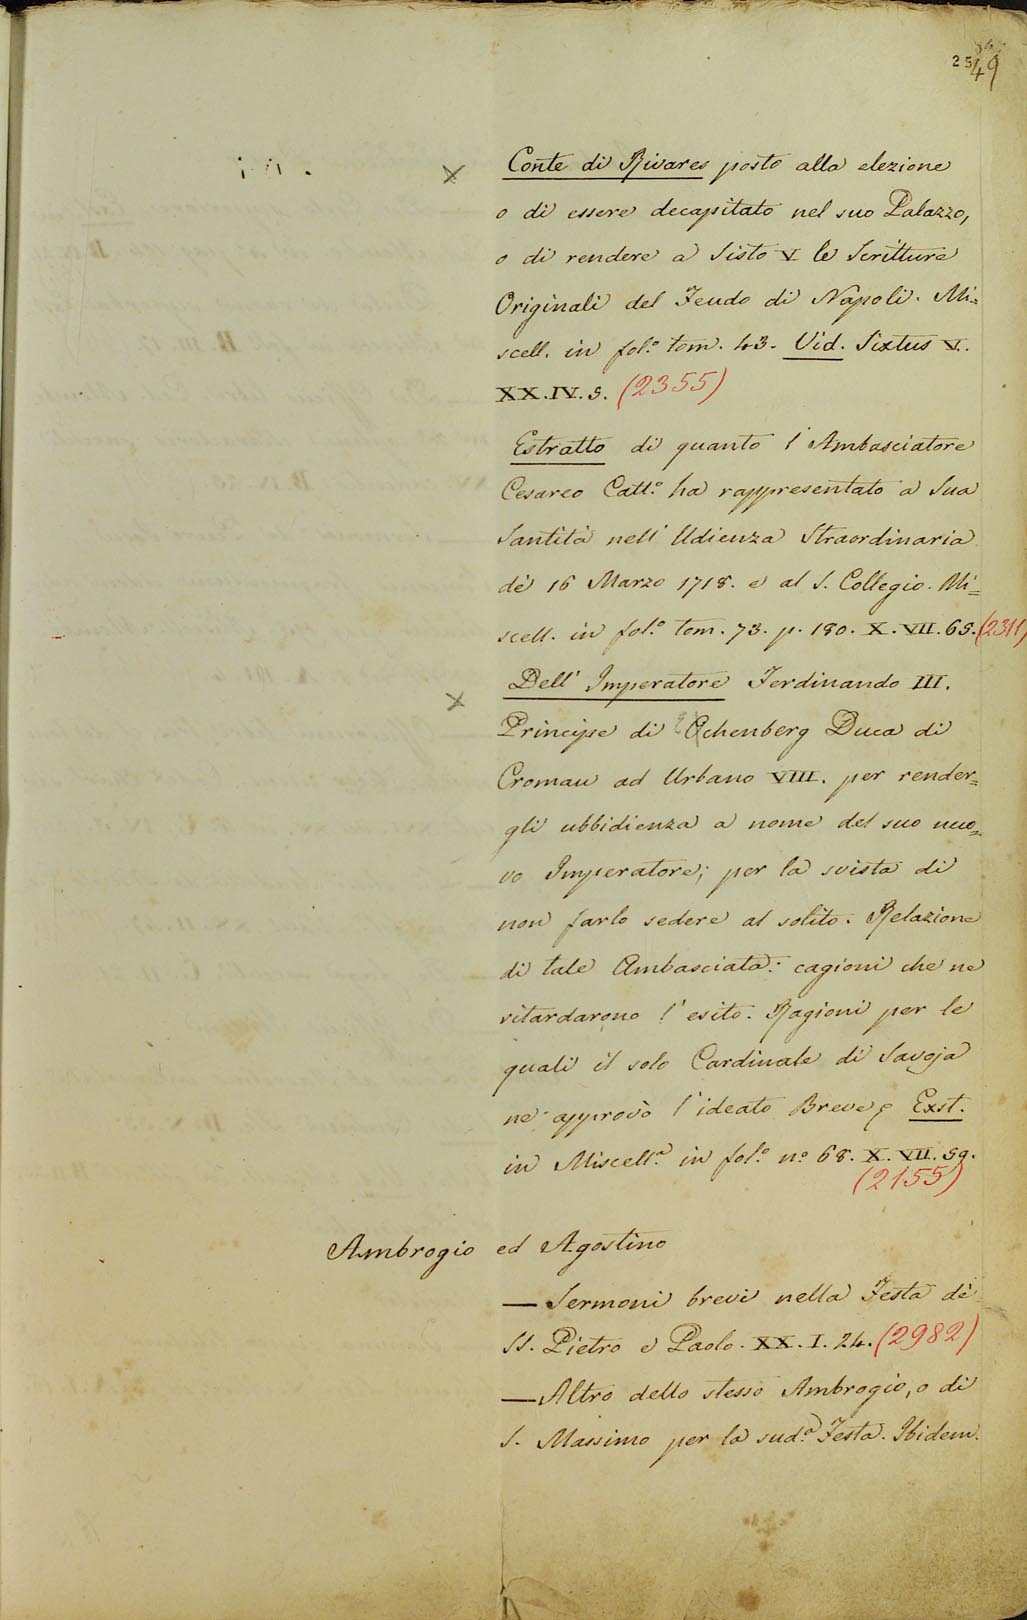 25
49
× Conte di Rivares posto alla elezione
o di essere decapitato nel suo Palazzo,
o di rendere a Sisto V le Scritture
Originali del Feudo di Napoli. Mi=
scell. in fol.º tom. 43. Vid. Sixtus V.
XX.IV.5. (2355)
Estratto di quanto l'Ambasciatore
Cesareo Catt.º ha rappresentato a Sua
Santità nell'Udienza Straordinaria
dè 16 Marzo 1718. e al S. Collegio. Mi=
scell. in fol.º tom. 73. p. 180. X.VII.65. (2311)
× Dell'Imperatore Ferdinando III.
Principe di Echenberg Duca di
Cromau ad Urbano VIII. per render=
gli ubbidienza a nome del suo nuo=
vo Imperatore; per la svista di
non farlo sedere al solito. Relazione
di tale Ambasciata: cagioni che ne
ritardarono l'esito. Ragioni per le
quali il solo Cardinale di Savoja
ne approvò l'ideato Breve, Exst.
in Miscell.ª in fol.º nº 68. X.VII.59.
(2155)
Ambrogio ed Agostino
— Sermoni brevi nella Festa dè
SS. Pietro e Paolo. XX.I.24. (2982)
— Altro dello stesso Ambrogio, o di
S. Massimo per la sud.ª Festa. Ibidem.